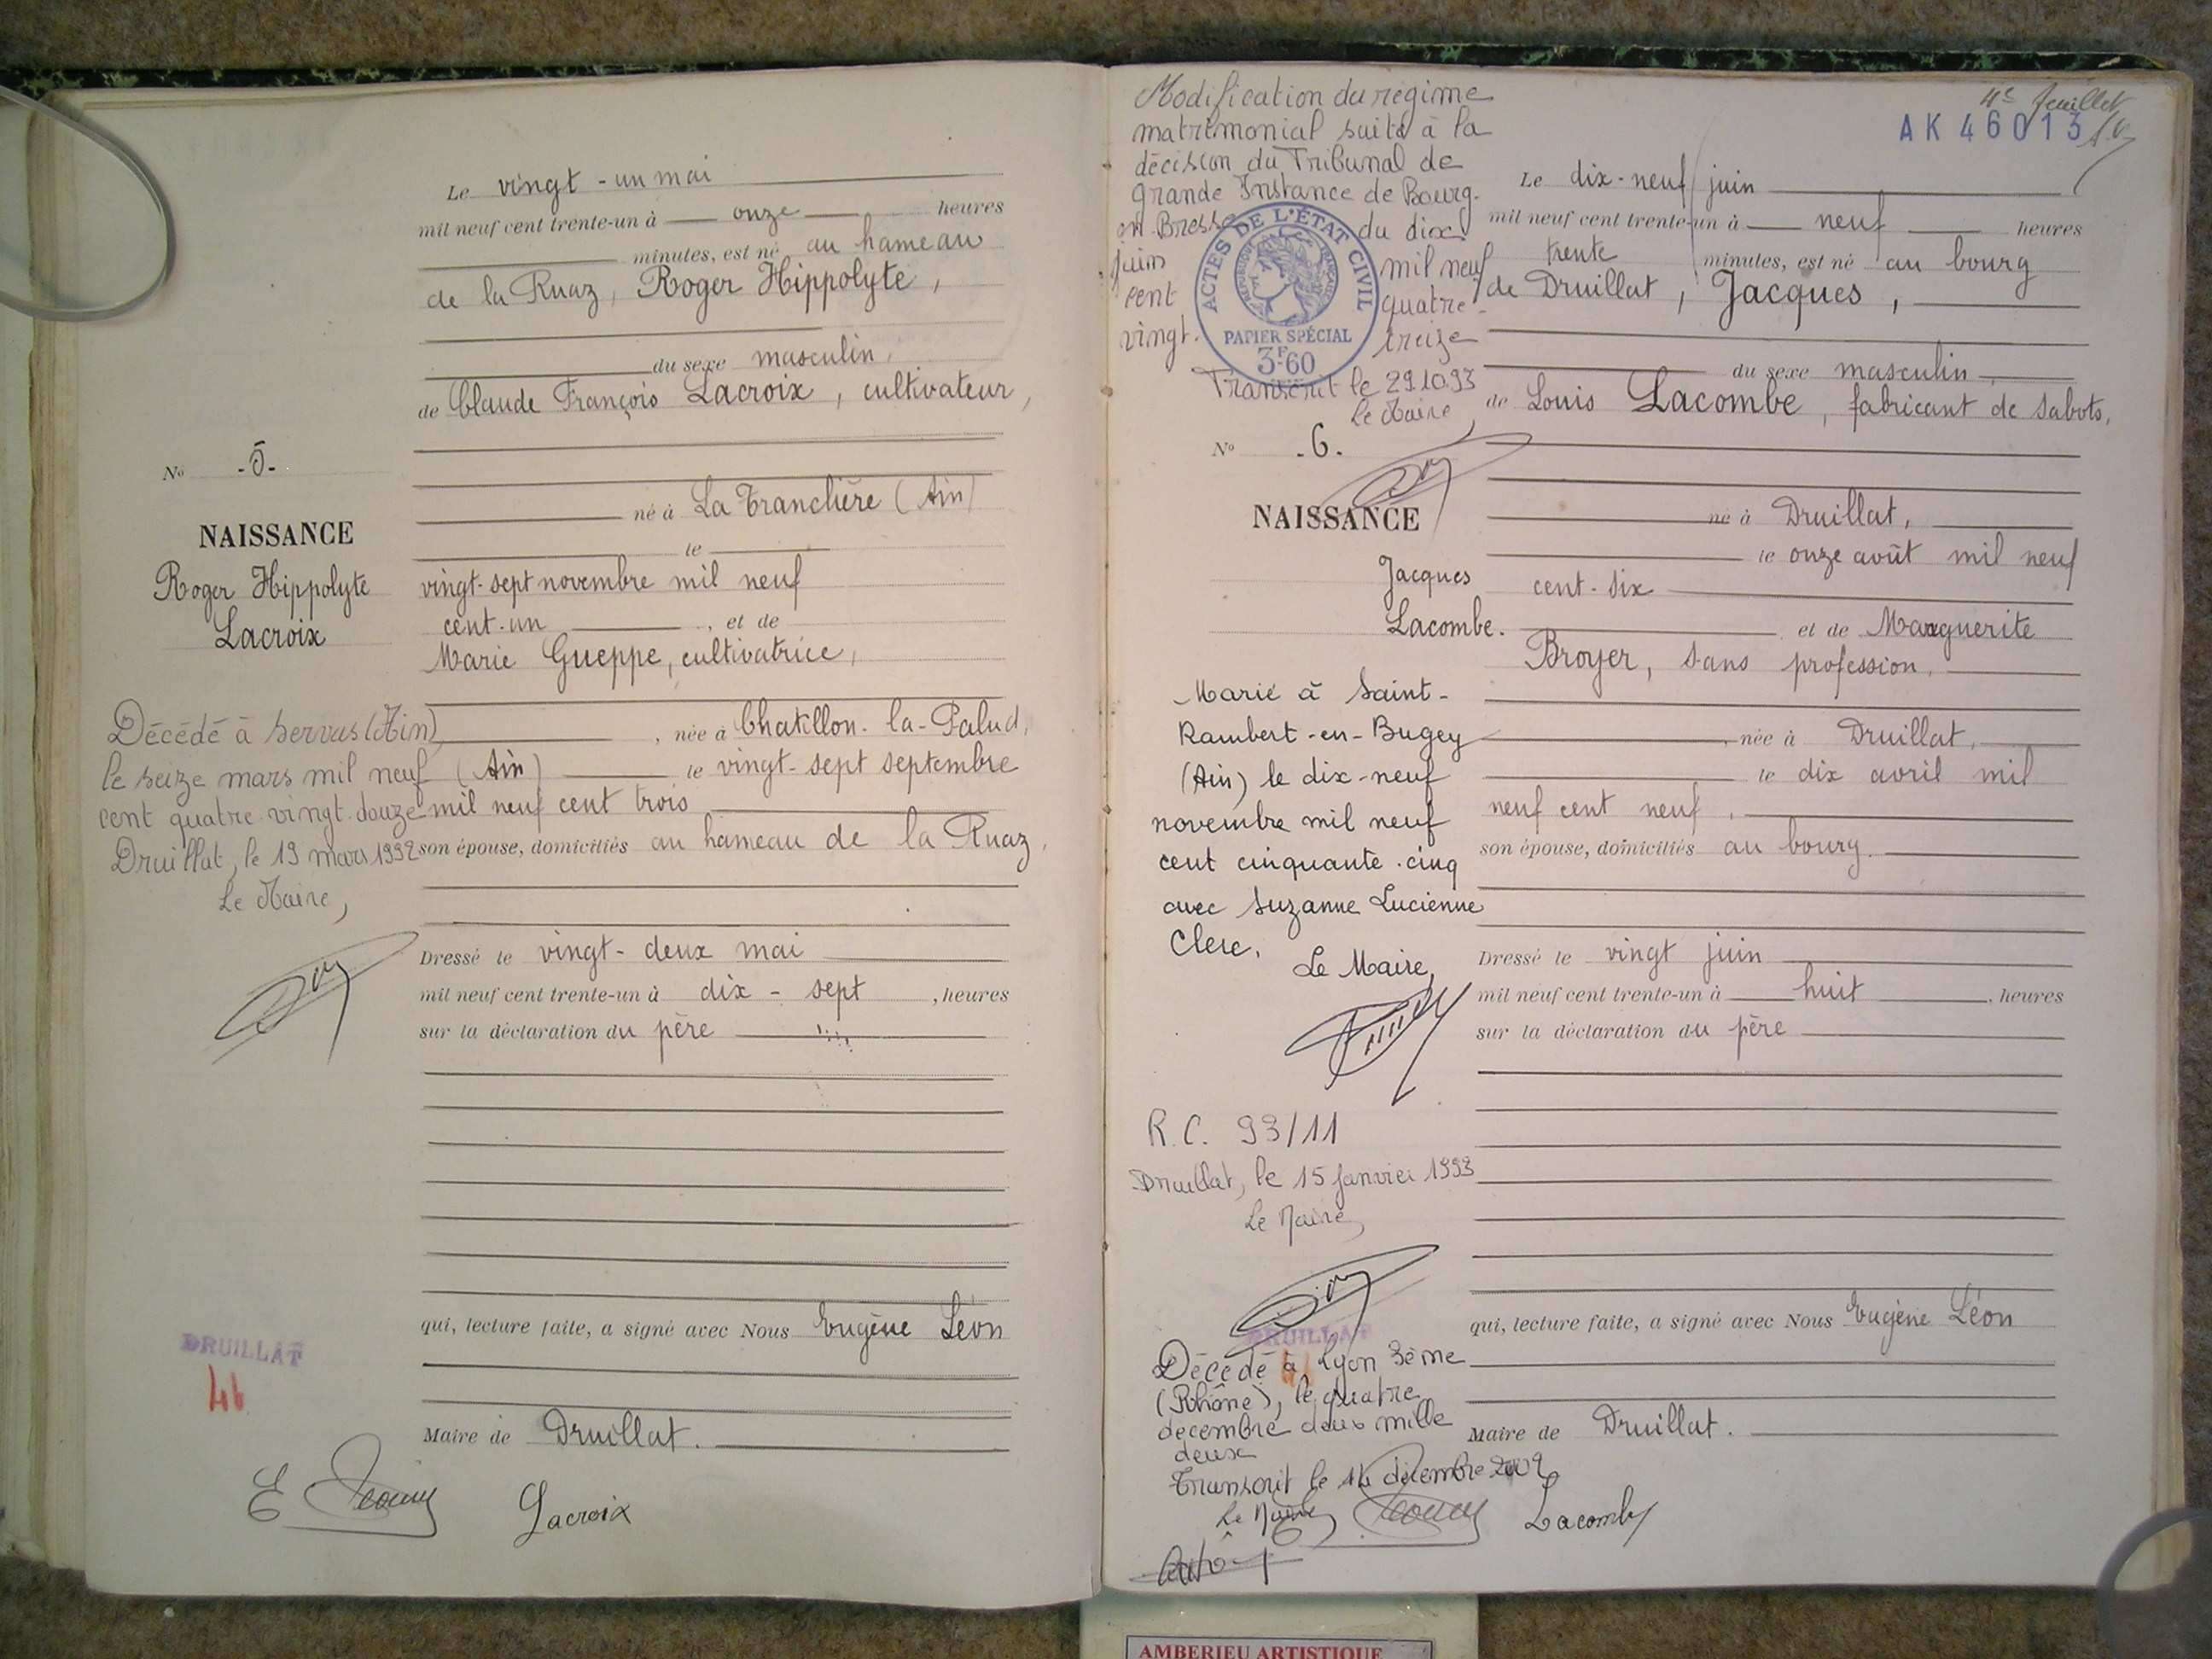 Le vingt-un mai
mil neuf cent trente-un à onze heures
minutes, est né au hameau
de la Ruaz, Roger Hippolyte,
du sexe masculin,
de Claude François Lacroix, cultivateur,
né à La Tranclière (Ain)
le
vingt-sept novembre mil neuf
cent-un, et de
Marie Gueppe, cultivatrice,
, née à Chatillon-la-Palud,
(Ain) le vingt-sept septembre
mil neuf cent trois
son épouse, domiciliés au hameau de la Ruaz,
Dressé le vingt-deux mai
mil neuf cent trente-un à dix-sept, heures
sur la déclaration du père
qui, lecture faite, a signé avec Nous Eugène Léon
Maire de Druillat.
Lacroix
No -5-
NAISSANCE
Roger Hippolyte
Lacroix
Décédé à Servas (Ain)
le seize mars mil neuf
cent quatre vingt douze
Druillat, le 19 mars 1992
Le Maire,
DRUILLAT
46
Modification du régime
matrimonial suite à la
décision du Tribunal de
Grande Instance de Bourg-
en-Bresse du dix
juin mil neuf
cent quatre-
vingt- treize
Transcrit le 29.10.93
Le Maire,
ACTES DE L'ÉTAT CIVIL
PAPIER SPÉCIAL
3F60
No -6-
NAISSANCE
Jacques
Lacombe.
Marié à Saint-
Rambert-en-Bugey
(Ain) le dix-neuf
novembre mil neuf
cent cinquante-cinq
avec Suzanne Lucienne
Clerc.
Le Maire,
R.C. 93/11
Druillat, le 15 janvier 1993
Le Maire,
DRUILLAT
Décédé à Lyon 3ème
(Rhône), le quatre
décembre deux mille
deux
Transcrit le 14 décembre 2002
Le Maire
4e feuillet
AK 46013
Le dix-neuf juin
mil neuf cent trente-un à neuf heures
trente minutes, est né au bourg
de Druillat, Jacques,
du sexe masculin,
de Louis Lacombe, fabricant de sabots,
né à Druillat,
le onze août mil neuf
cent-six
et de Marguerite
Broyer, sans profession,
, née à Druillat,
le dix avril mil
neuf cent neuf,
son épouse, domiciliés au bourg.
Dressé le vingt juin
mil neuf cent trente-un à huit, heures
sur la déclaration du père
qui, lecture faite, a signé avec Nous Eugène Léon
Maire de Druillat.
Lacombe
AMBERIEU ARTISTIQUE